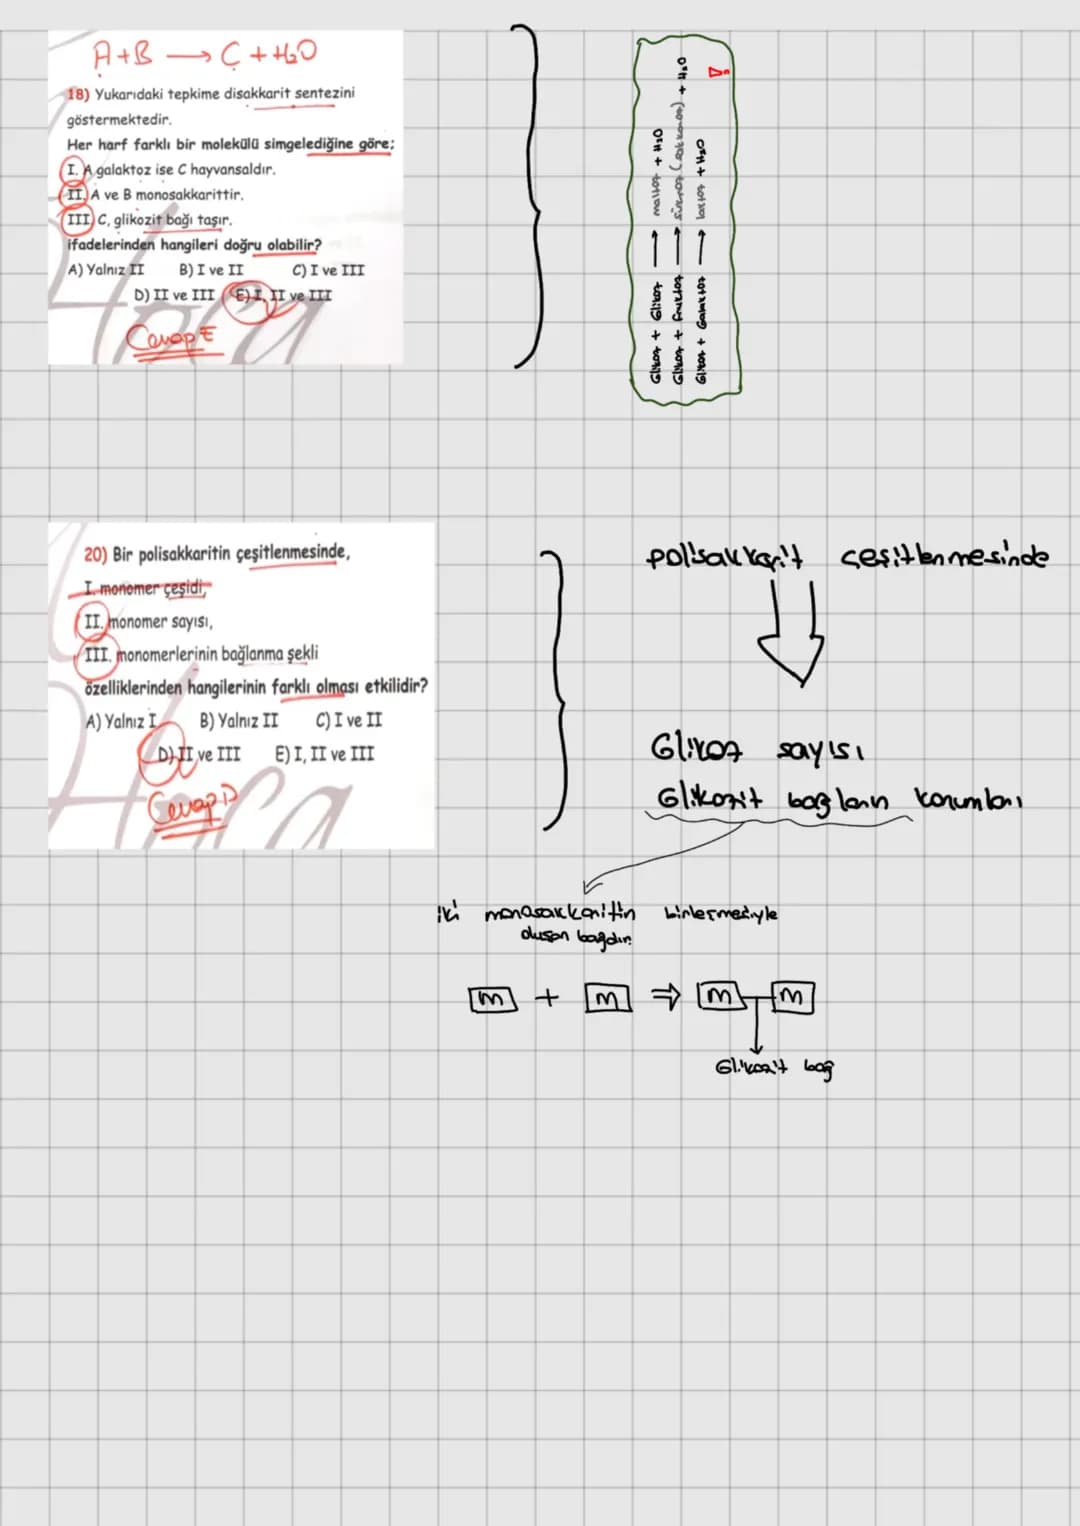 A+B → C + H₂O
18) Yukarıdaki tepkime disakkarit sentezini
göstermektedir.
Her harf farklı bir molekülü simgelediğine göre;
I. A galaktoz ise C hayvansaldır.
II. A ve B monosakkarittir.
III. C, glikozit bağı taşır.
ifadelerinden hangileri doğru olabilir?
A) Yalnız II B) I ve II C) I ve III
D) II ve III E) I, II ve III
Cevap E
Glikoz + Glikoz → maltoz + H₂O
Glikoz + fruktoz → sükroz (sakkaroz) + H₂O
Glikoz + Galaktoz → laktoz + H₂O
20) Bir polisakkaritin çeşitlenmesinde,
I. monomer çeşidi,
II. monomer sayısı,
III. monomerlerinin bağlanma şekli
özelliklerinden hangilerinin farklı olması etkilidir?
A) Yalnız I B) Yalnız II C) I ve II
D) II ve III E) I, II ve III
Cevap D
polisakkarit çeşitlenmesinde
Glikoz sayısı
Glikozit bağların konumları
iki monosakkaritin birleşmesiyle
oluşan bağdır.
m + m ⇒ m m
Glikozit bağ
Hoca